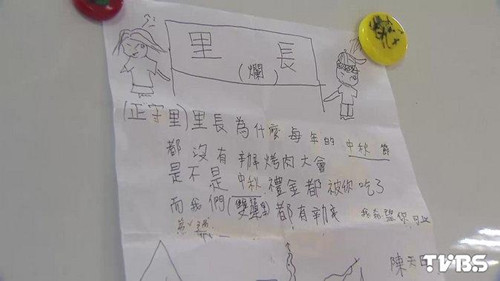 里 長
(爛)
(正守里)里長為什麼每年的中秋節
都沒有辦烤肉大會
是不是中秋禮金都被你吃了
而我們(雙蓮里)都有辦
陳天
TVBS